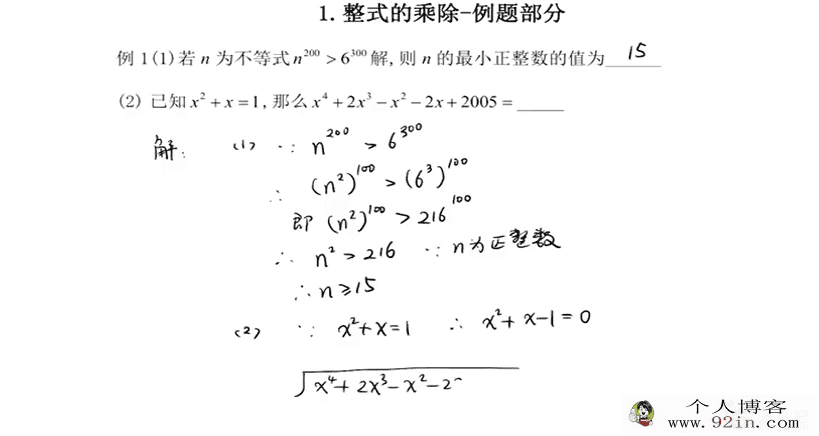 1. 整式的乘除-例题部分
例1(1)若n为不等式n²⁰⁰>6³⁰⁰解,则n的最小正整数的值为 15
(2) 已知x²+x=1,那么x⁴+2x³-x²-2x+2005=_____
解: (1) ∵ n²⁰⁰ > 6³⁰⁰
∴ (n²)¹⁰⁰ > (6³)¹⁰⁰
即 (n²)¹⁰⁰ > 216¹⁰⁰
∴ n² > 216 ∵ n为正整数
∴ n ≥ 15
(2) ∵ x²+x=1 ∴ x²+x-1=0
x⁴+2x³-x²-2
个人博客
www.92in.com